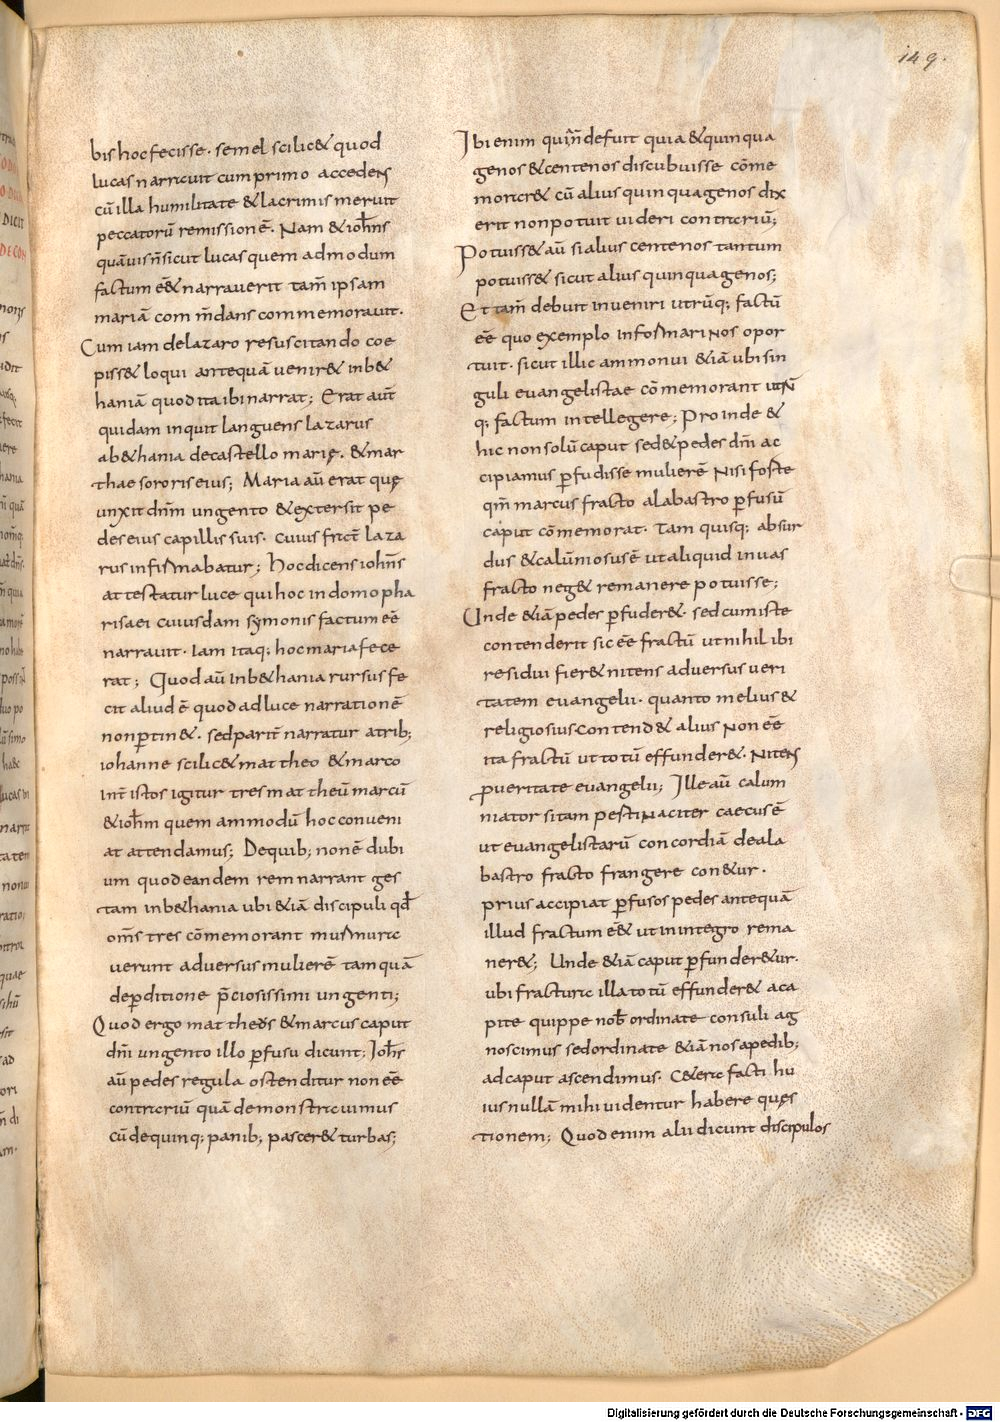 149.
bis hoc fecisse. semel scilic& quod
lucas narrauit cum primo accedens
cū illa humilitate & lacrimis meruit
peccatorū remissionē. Nam & ioħns
quāuis n̄ sicut lucas quem admodum
factum ēē narrauerit tam̄ ipsam
mariā com m̄dans commemorauit.
Cum iam de lazaro resuscitando coe
piss& loqui antequā uenir& in b&
haniā quod ita ibi narrat; Erat aut̄
quidam inquit languens lazarus
ab&hania de castello marię. & mar
thae sororis eius; Maria aū erat quę
unxit dn̄m ungento & extersit pe
des eius capillis suis. cuius frat̄ laza
rus infirmabatur; Hoc dicens iohn̄s
attestatur luce qui hoc in domo pha
risaei cuiusdam symonis factum ēē
narrauit. Iam itaq; hoc maria fece
rat; Quod aū in b&hania rursus fe
cit aliud ē quod ad luce narrationē
non ꝑtin&. sed parit̄ narratur a trib;
iohanne scilic& mattheo & marco
int̄ istos igitur tres mattheū marcū
& ioħm quem ammodū hoc conueni
at attendamus; De quib; non ē dubi
um quod eandem rem narrant ges
tam in b&hania ubi &iā discipuli qđ
om̄s tres cōmemorant murmura
uerunt aduersus mulierē tamquā
de ꝑditione p̄ciosissimi ungenti;
Quod ergo mattheus & marcus caput
dn̄i ungento illo ꝑfusū dicunt; Ioħs
aū pedes regula ostenditur non ēē
contrariū quā demonstrauimus
cū de quinq; panib; pascer& turbas;
Ibi enim quin̄ defuit qui a & quinqua
genos & centenos discubuisse cōme
morar& cū alius quinquagenos dix
erit non potuit uideri contrariū;
Potuiss& aū si alius centenos tantum
potuiss& sicut alius quinquagenos;
Et tam̄ debuit inueniri utrūq; factū
ēē quo exemplo informari nos opor
tuit. sicut illic ammonui &iā ubi sin
guli euangelistae cōmemorant utrū
q; factum intellegere; Proinde &
hic non solū caput sed & pedes dn̄i ac
cipiamus ꝑfudisse mulierē Nisi forte
qm̄ marcus fracto alabastro ꝑfusū
caput cōmemorat. Tam quisq; absur
dus & calūniosus ē ut aliquid in uas
fracto neg& remanere potuisse;
Unde &iā pedes ꝑfuder&. sed cum iste
contenderit sic ēē fractū ut nihil ibi
residui fier& nitens aduersus ueri
tatem euangelii. quanto melius &
religiosius contend& alius Non ēē
ita fractū ut totū effunder&. Nitens
p ueritate euangelii; Ille aū calum
niator si tam pestinaciter caecus ē
ut euangelistarū concordiā de ala
bastro fracto frangere con&ur.
prius accipiat ꝑfusos pedes antequā
illud fractum ēē ut in integro rema
ner&; Unde &iā caput ꝑfunder&ur.
ubi fractura illa totū effunder& a ca
pite quippe nob̄ ordinate consuli ag
noscimus sed ordinate &iā nos a pedib;
ad caput ascendimus. C&era facti hu
ius nullā mihi uidentur habere quęs
tionem; Quod enim alii dicunt discipulos
Digitalisierung gefördert durch die Deutsche Forschungsgemeinschaft - DFG